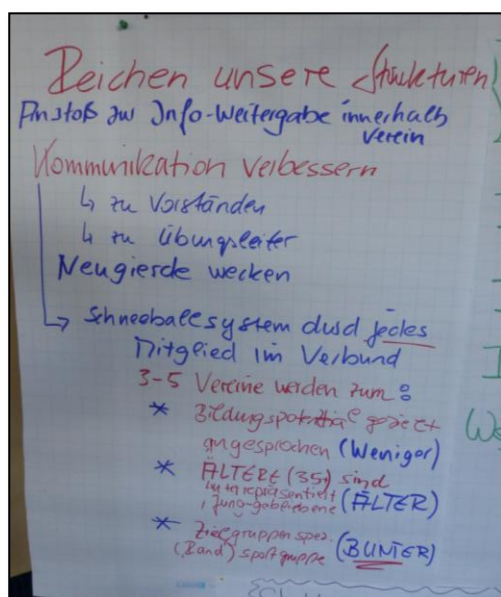 Reichen unsere Strukturen
Anstoß zur Info-Weitergabe innerhalb
Verein
Kommunikation verbessern
↳ zu Vorständen
↳ zu Übungsleiter
Neugierde wecken
↳ Schneeballsystem durch jedes
Mitglied im Verbund
3-5 Vereine werden zum:
* Bildungspotential gezielt
angesprochen (Weniger)
* ÄLTERE (35+) sind
unterrepräsentiert
, Jung-gebliebene (ÄLTER)
* Zielgruppenspez.
(Rand) sportgruppe (BUNTER)